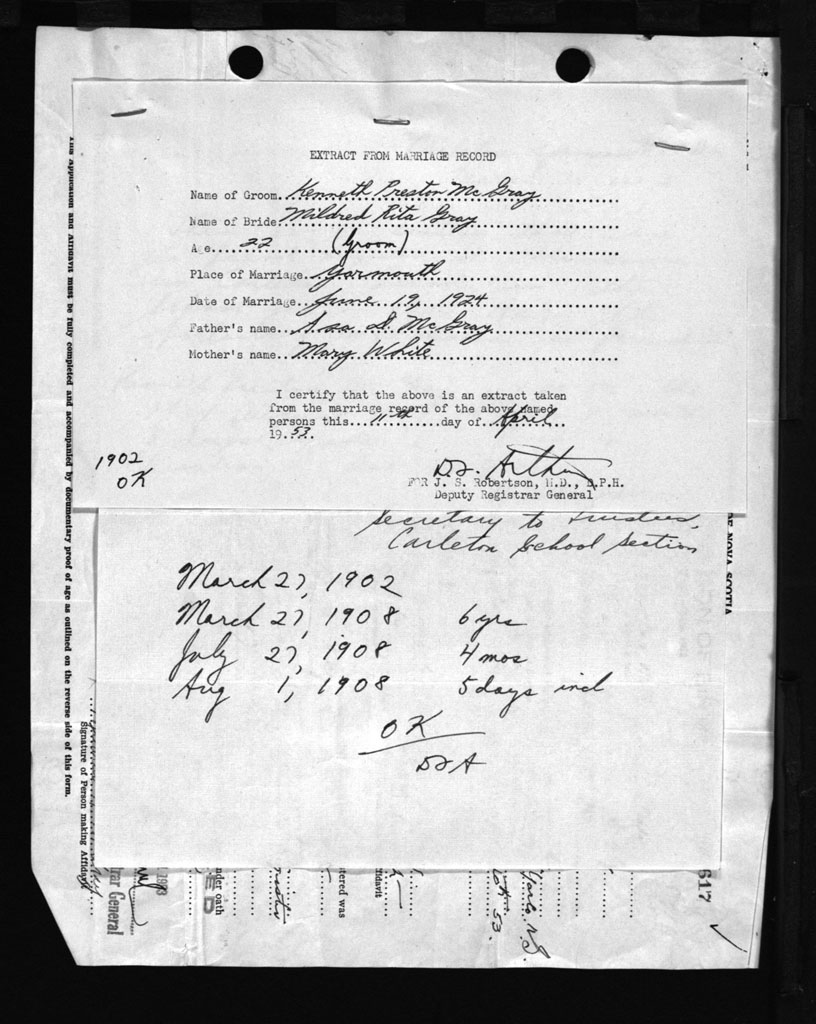 EXTRACT FROM MARRIAGE RECORD
Name of Groom. Kenneth Preston McGray
Name of Bride Mildred Rita Gray
Age.... 22 (Groom)
Place of Marriage. Yarmouth
Date of Marriage. June 19, 1924
Father's name. Asa D. McGray
Mother's name. Mary White
I certify that the above is an extract taken
from the marriage record of the above named
persons this 11th day of April
19.53.
1902
OK
FOR J. S. Robertson, M.D., D.P.H.
Deputy Registrar General
Secretary to Trustees,
Carleton School Section
March 27, 1902
March 27, 1908 6 yrs
July 27, 1908 4 mos
Aug 1, 1908 5 days incl
OK
The Application and Affidavit must be fully completed and accompanied by documentary proof of age as outlined on the reverse side of this form.
Signature of Person making Affidavit
OF NOVA SCOTIA
rar General
nder oath
ED
tered was
ffidavit
53.
617